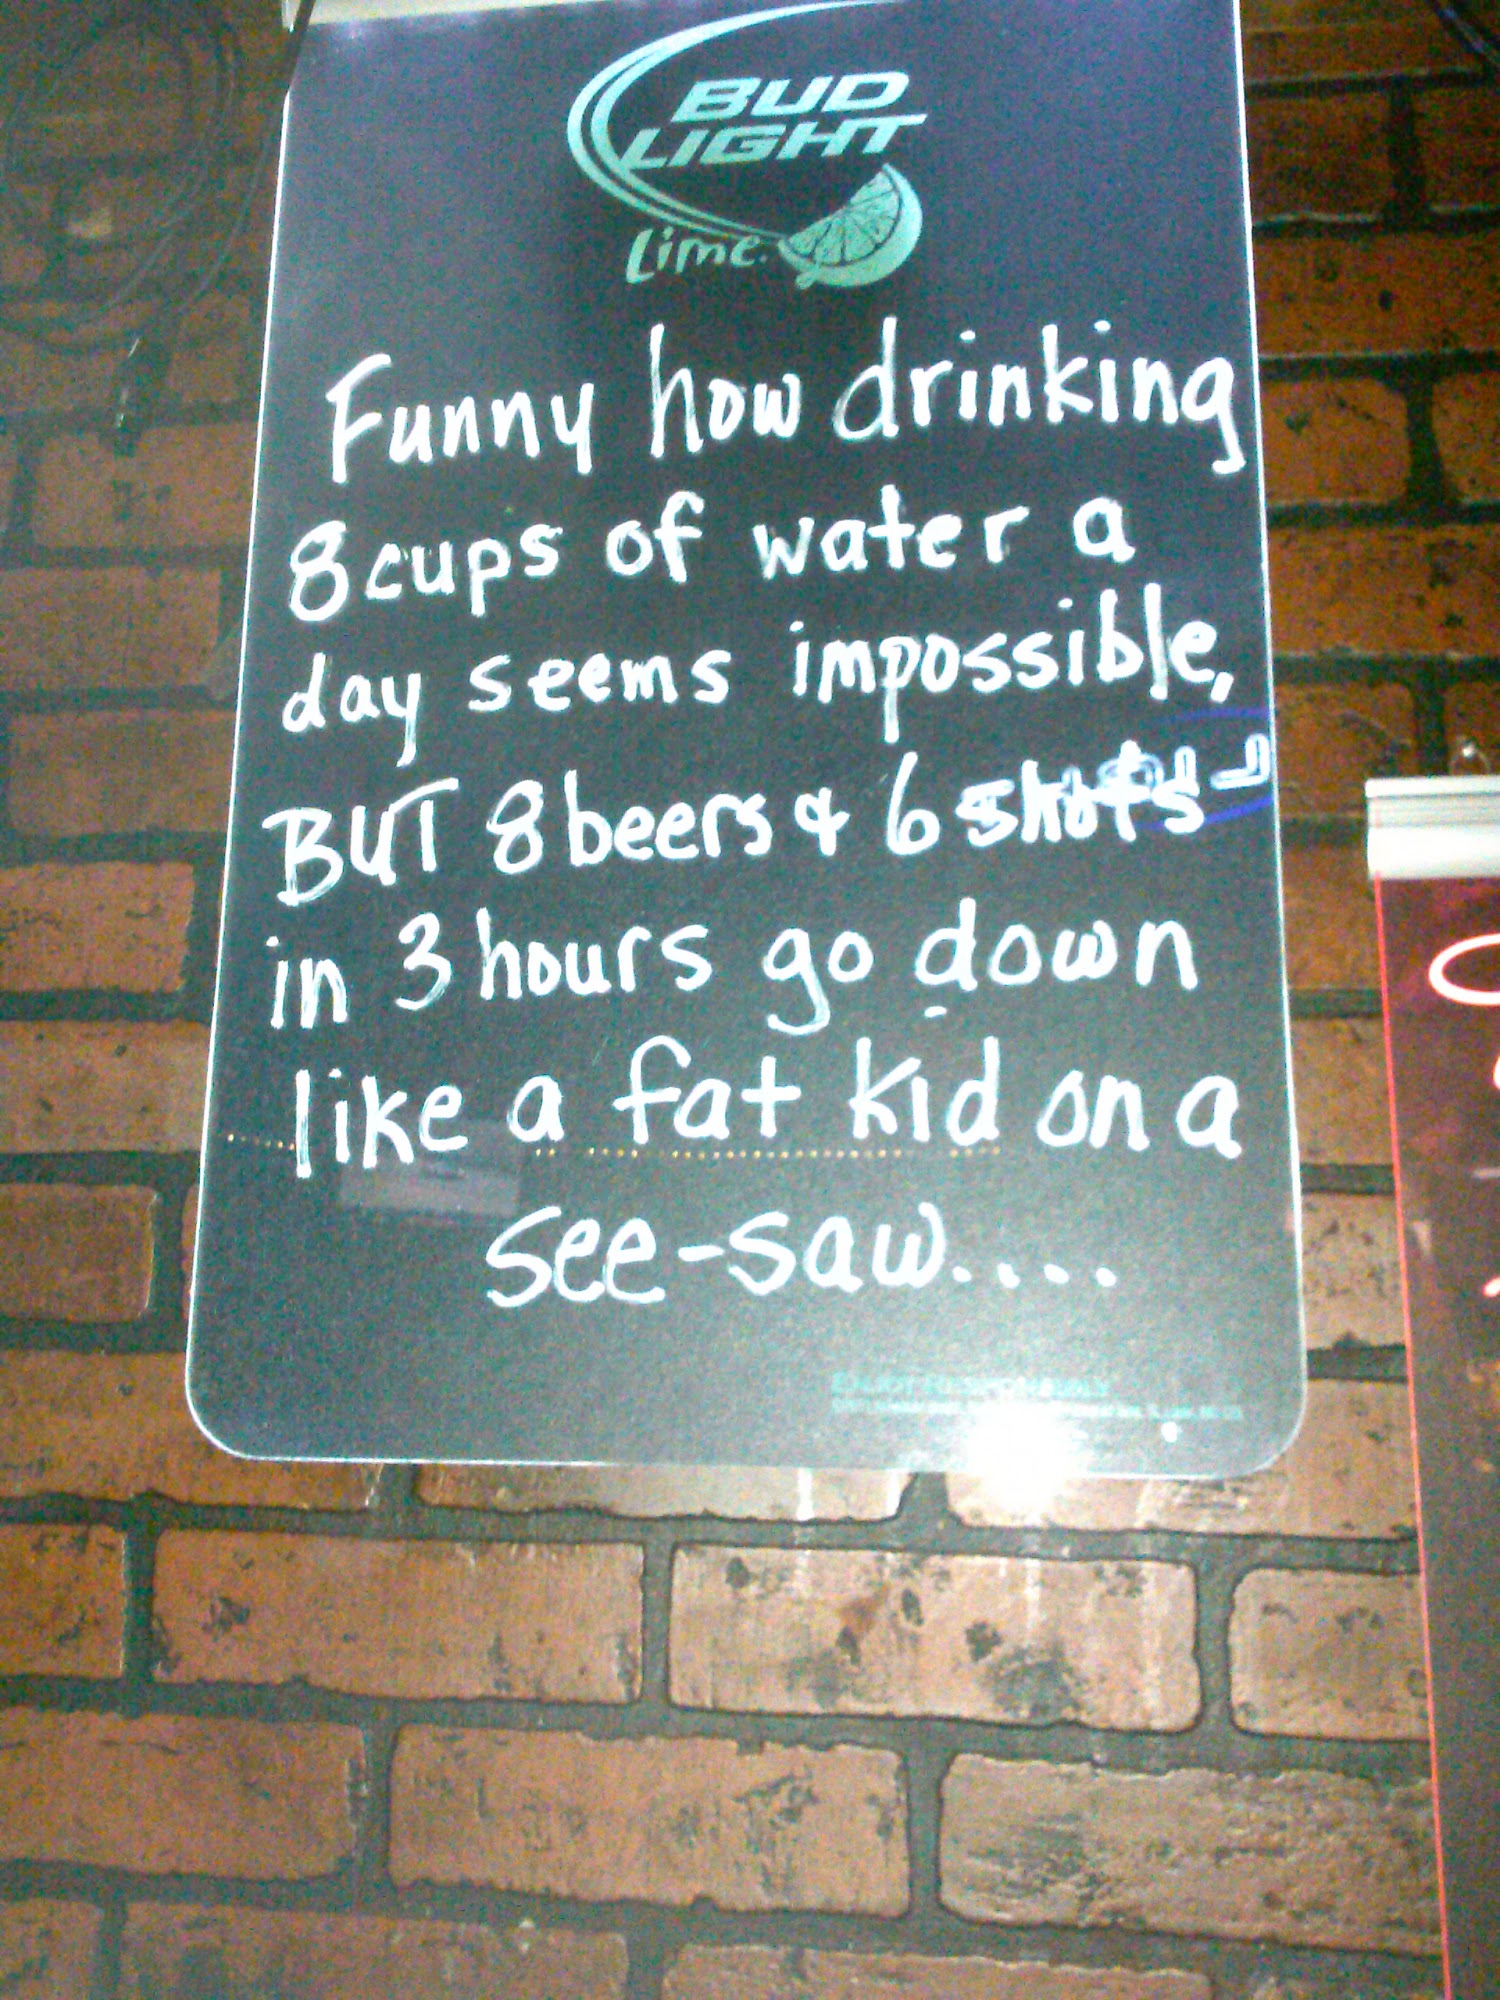 BUD
LIGHT
Lime.
Funny how drinking
8 cups of water a
day seems impossible,
BUT 8 beers & 6 shots
in 3 hours go down
like a fat kid on a
see-saw....
ENJOY RESPONSIBLY